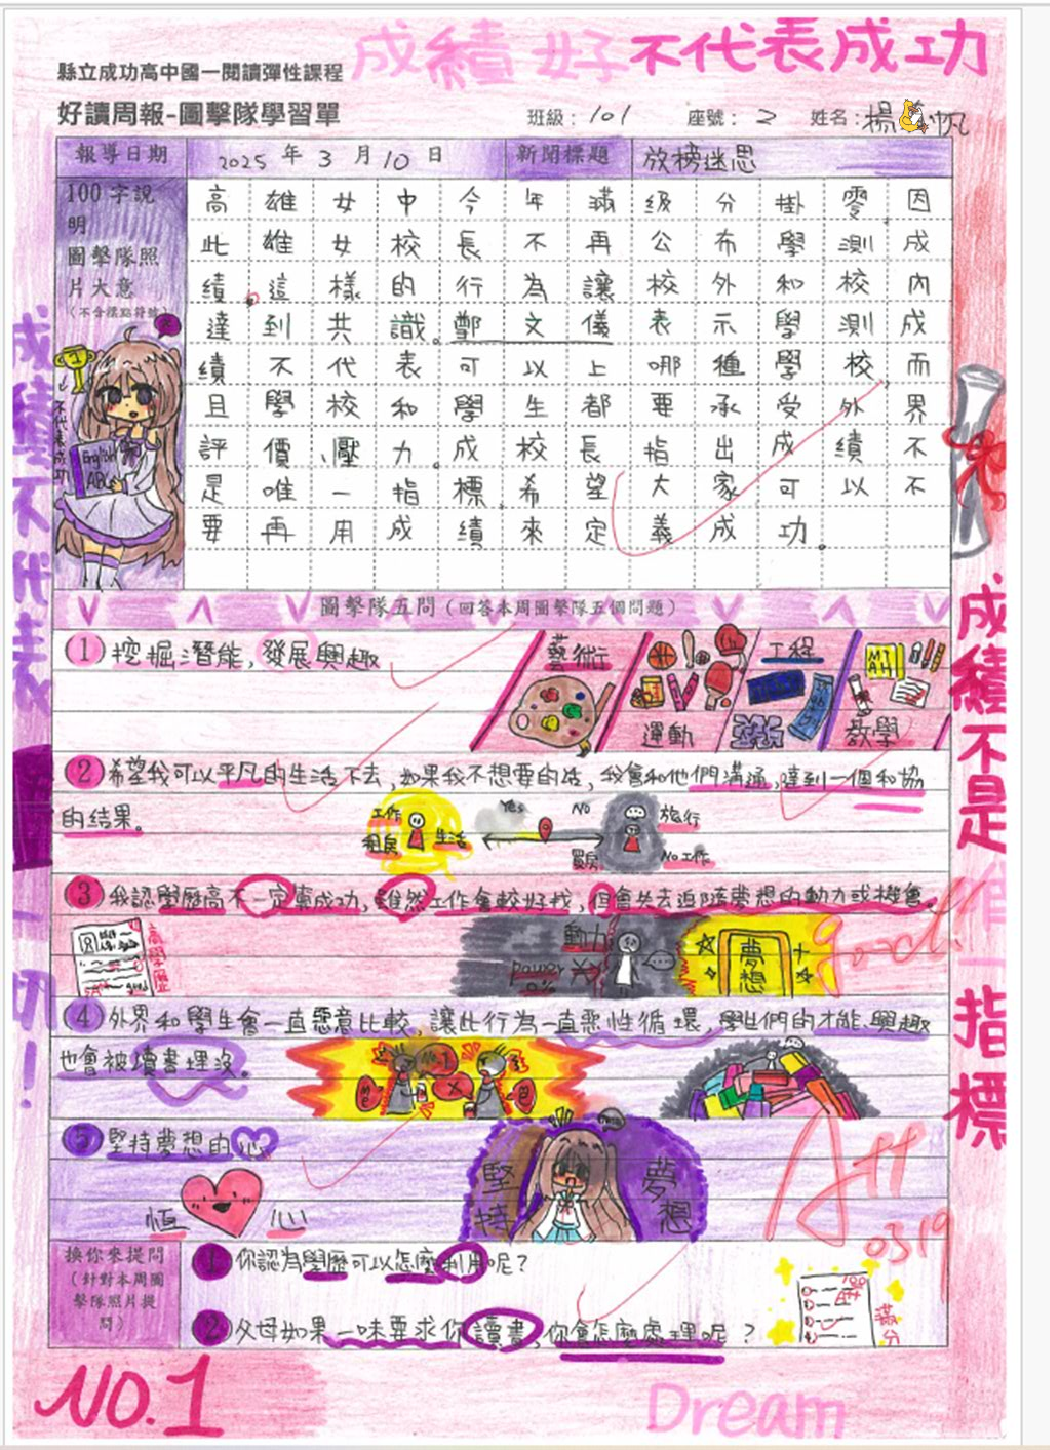 成績好不代表成功
縣立成功高中國一閱讀彈性課程
好讀周報-圖擊隊學習單
班級：101 座號：2 姓名：楊 帆
報導日期 2025年3月10日 新聞標題 放榜迷思
100字說
明
圖擊隊照
片大意
（不含標點符號）
高雄女中今年滿級分掛零，因
此雄女校長不再公布學測成
績。這樣的行為讓校外和校內
達到共識。鄭文儀表示學測成
績不代表可以上哪種學校，而
且學校和學生都要承受外界
評價、壓力。成校長指出成績不
是唯一指標，希望大家可以不
要再用成績來定義成功。
1
不代表成功
English
ABC
成績不代表一切！
成績不是唯一指標
圖擊隊五問（回答本周圖擊隊五個問題）
① 挖掘潛能，發展興趣
藝術 運動 工程 教學
MATH
② 希望我可以平凡的生活下去，如果我不想要的話，我會和他們溝通，達到一個和協
的結果。
工作 租房 生活 Yes NO 買房 旅行 No工作
③ 我認學歷高不一定業成功，雖然工作會較好找，但會失去追隨夢想的動力或機會。
高學歷 動力 power 0% 夢想
good!!
④ 外界和學生會一直惡意比較，讓此行為一直惡性循環，學生們的才能、興趣
也會被讀書埋沒。
⑤ 堅持夢想的心
恆 心 堅持 夢想
A++
0319
換你來提問
（針對本周圖
擊隊照片提
問）
① 你認為學歷可以怎麼利用呢？
② 父母如果一味要求你讀書，你會怎麼處理呢？
100
滿分
NO.1
Dream